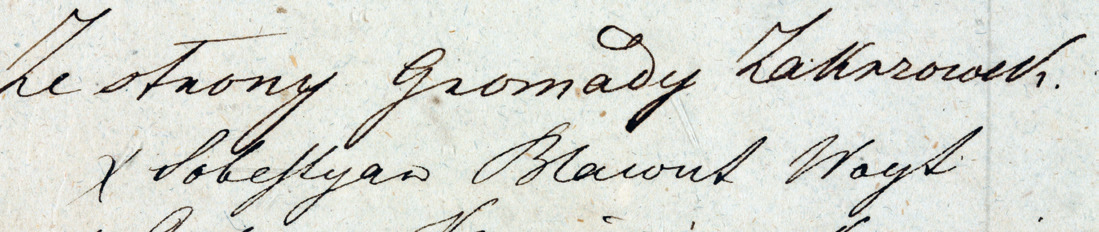 Ze strony Gromady Zakrzowek.
x Sobestyan Blawut Woyt